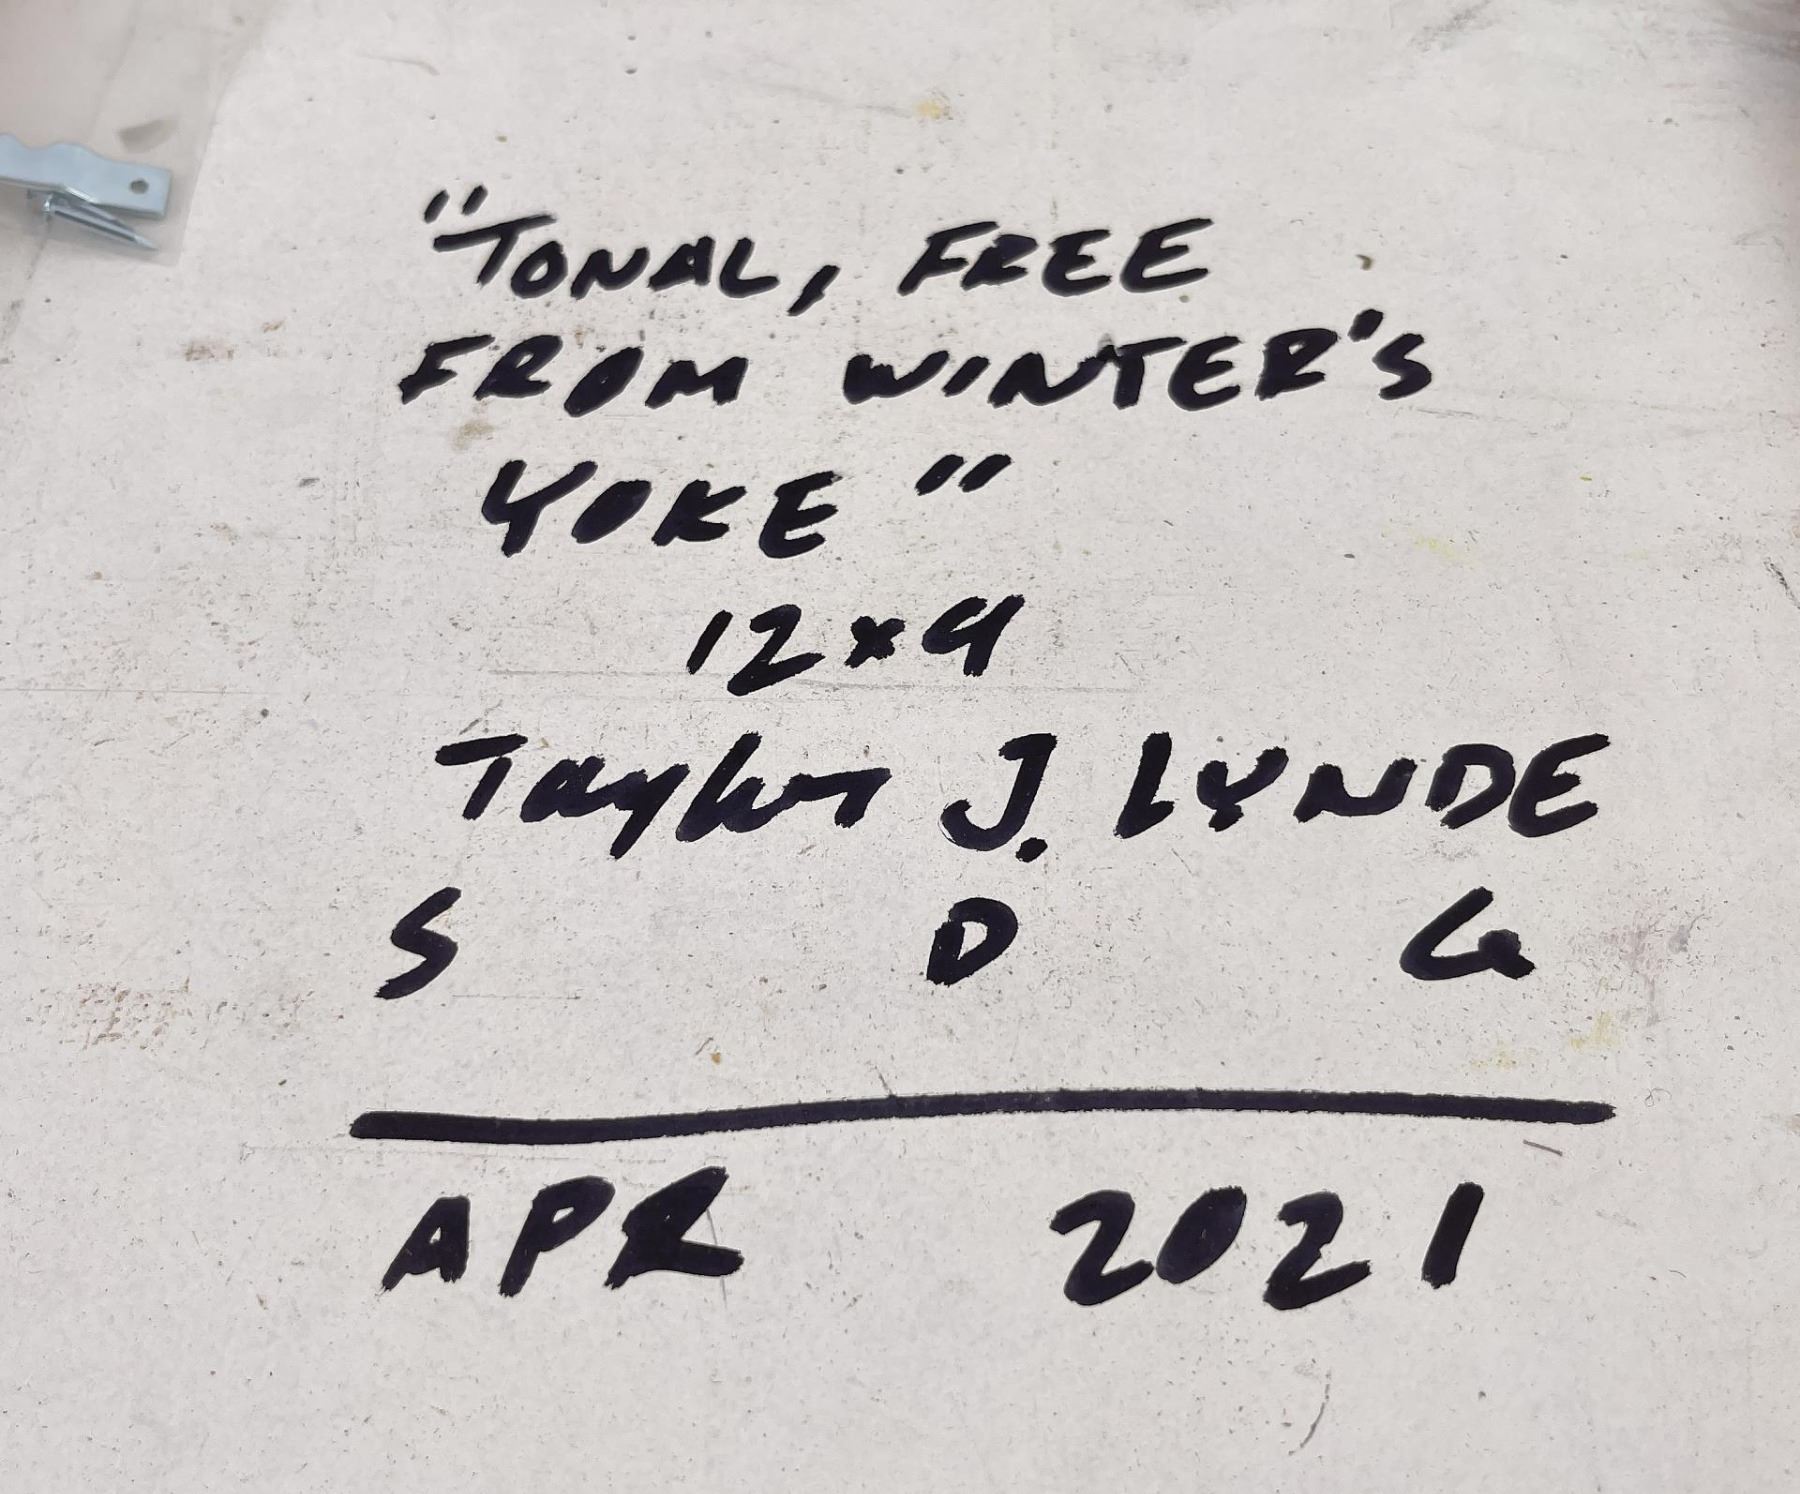 "TONAL, FREE
FROM WINTER'S
YOKE"
12x9
Taylor J. LYNDE
S D G
APR 2021